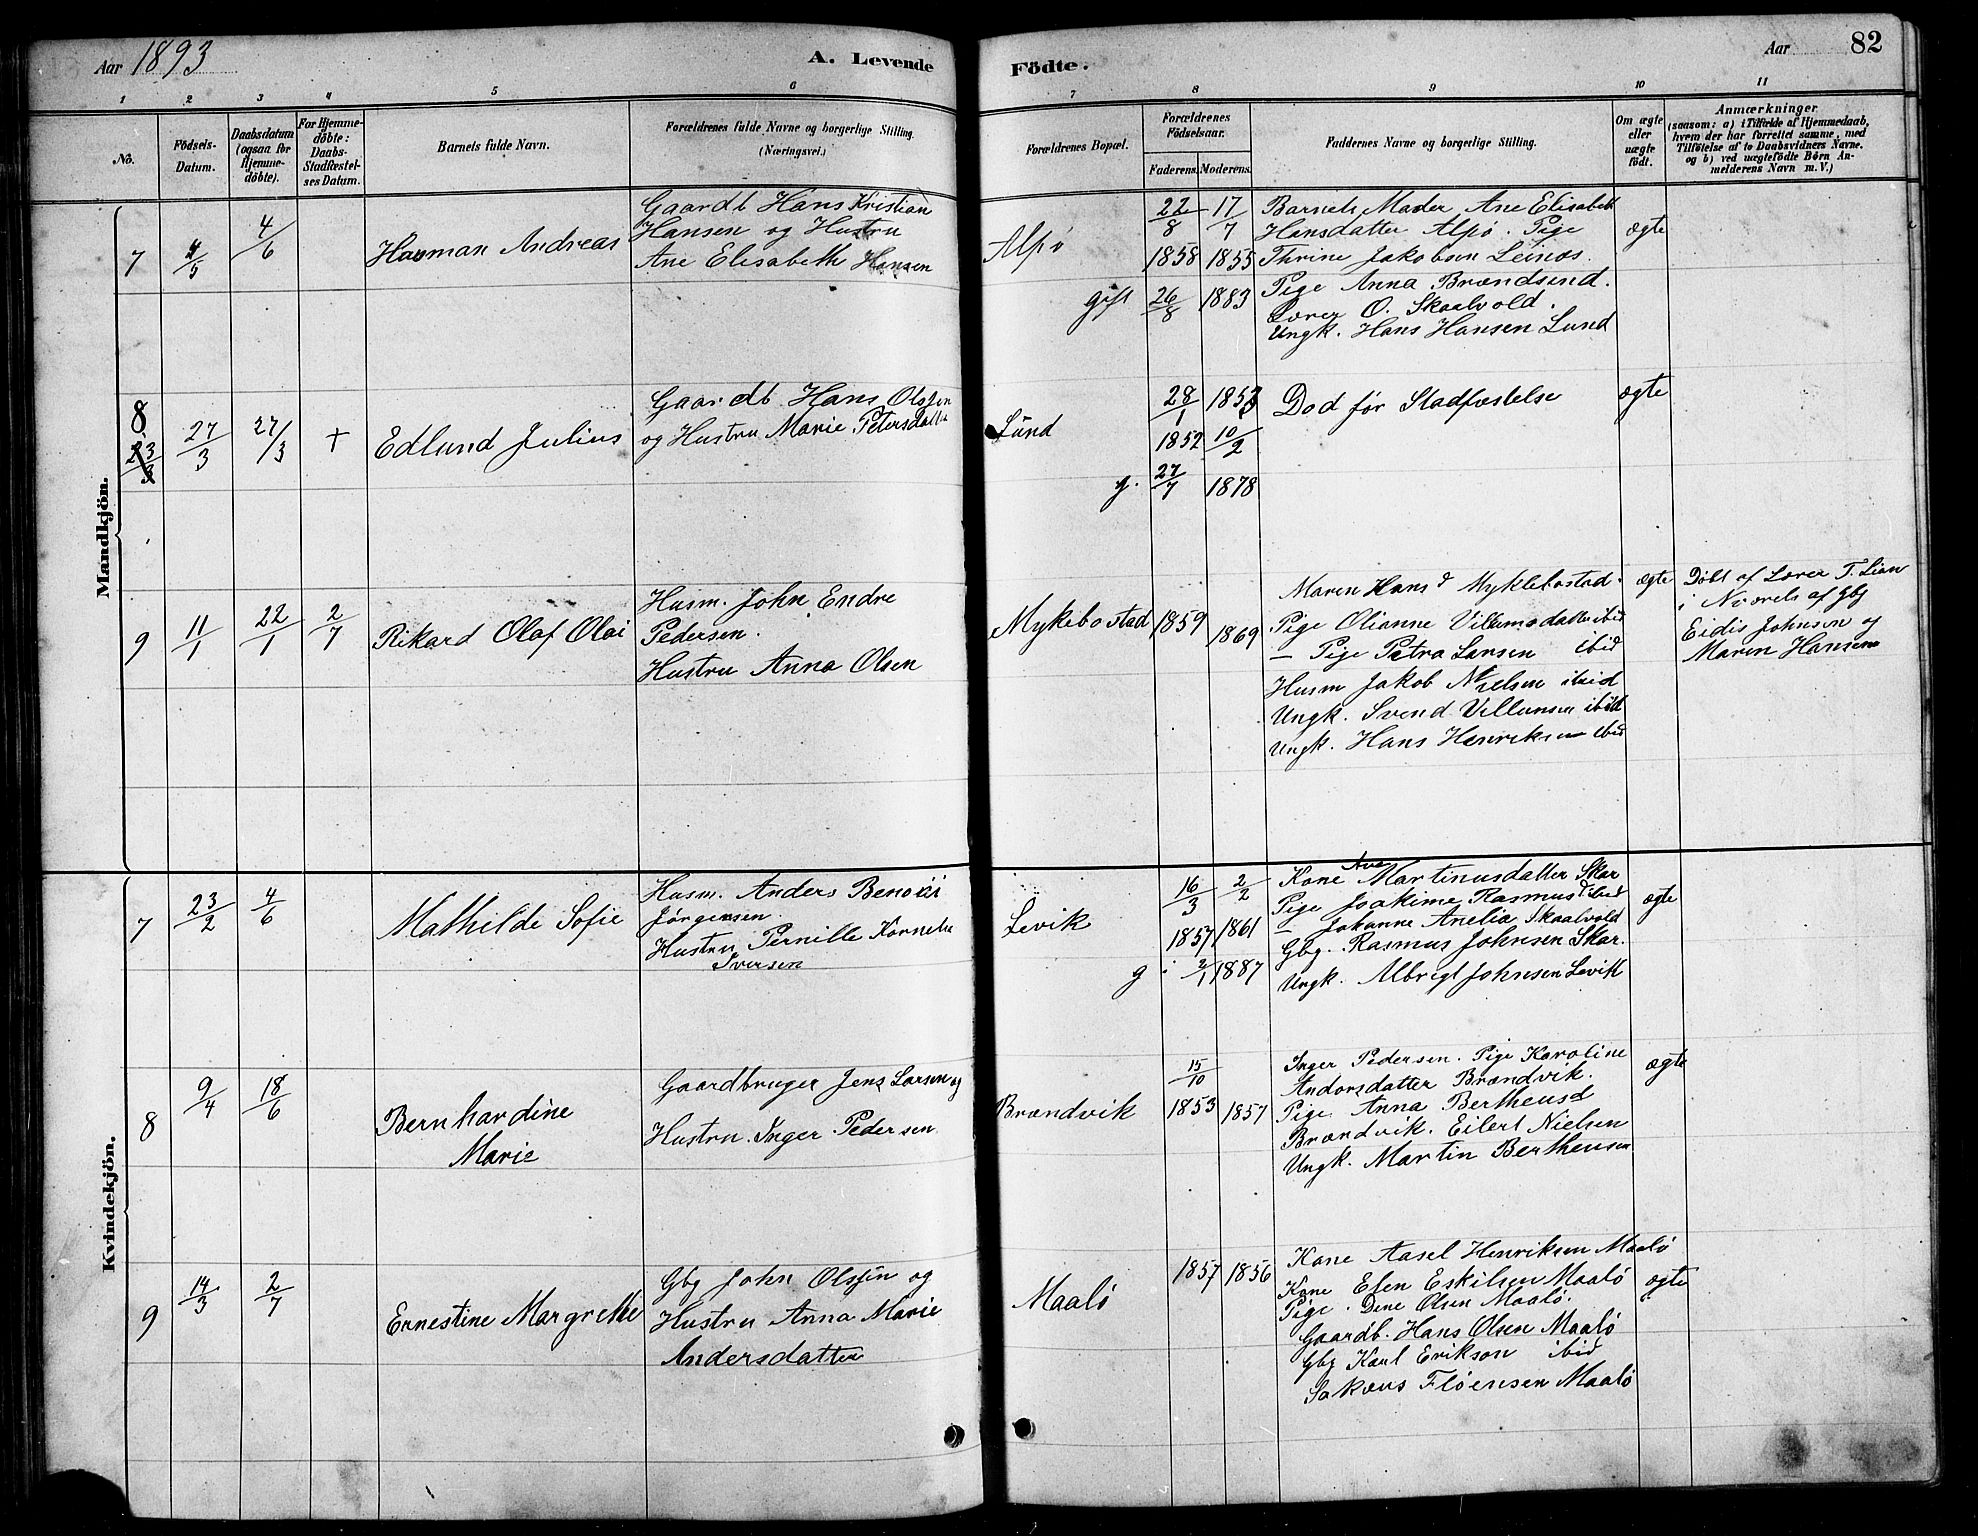 Aar 1893
A. Levende Födte.
Aar 82
1 2 3 4 5 6 7 8 9 10 11
No.
Födsels-
Datum.
Daabsdatum
(ogsaa for
Hjemme-
döbte).
For Hjemme-
döbte:
Daabs-
Stadfæstel-
ses Datum.
Barnets fulde Navn.
Forældrenes fulde Navne og borgerlige Stilling.
(Næringsvei.)
Forældrenes Bopæl.
Forældrenes
Födselsaar.
Faderens. Moderens.
Faddernes Navne og borgerlige Stilling.
Om ægte
eller
uægte
födt.
Anmærkninger
(saasom: a) i Tilfælde af Hjemmedaab,
hvem der har forrettet samme, med
Tilföielse af to Daabsvidners Navne.
og b) ved uægtefödte Börn An-
melderens Navn m. V.)
Mandkjön.
7
4/5
4/6
Herman Andreas
Gaardb Hans Kristian
Hansen og Hustru
Ane Elisabeth Hansen
Alpø
22/8 17/7
1858 1855
gift 26/8 1883
Barnets Moder Ane Elisabeth
Hansdatter Alpø. Pige
Thrine Jakobsen Leinæs.
Pige Anna Brændsund.
Lærer O. Skaalvold.
Ungk. Hans Hansen Lund
ægte
8
23/3
27/3
27/3
+
Edlund Julius
Gaardb Hans Olssen
og Hustru Marie Petersdatter
Lund
28/1 1853
1852 10/2
g. 27/7 1878
Død før Stadfæstelse
ægte
9
11/1
22/1
2/7
Rikard Olaf Olai
Husm. John Endre
Pedersen.
Hustru Anna Olsen
Mykebostad
1859 1869
Maren Hansd Myklebostad.
Pige Olianne Villumsdatter ibid
— Pige Petra Larsen ibid
Husm Jakob Nielsen ibid
Ungk. Svend Villumsen ibid
Ungk. Hans Henriksen ibid
ægte
Døbt af Lærer T. Lian
i Nværels af Gbg
Eidis Johnsen og
Maren Hansen
Kvindekjön.
7
23/2
4/6
Mathilde Sofie
Husm. Anders Benoni
Jørgensen.
Hustru Pernille Kornelia
Iversen
Levik
16/3 2/2
1857 1861
g i 2/1 1887
Kone Ane Martinusdatter Skar
Pige Joakime Rasmusd ibid
— Johanne Anelia Skaalvold
Gbg. Rasmus Johnsen Skar.
Ungk. Albrigt Johnsen Levik
ægte
8
9/4
18/6
Bernhardine
Marie
Gaardbruger Jens Larsen og
Hustru. Inger Pedersen
Brændvik
15/10
1853 1857
Inger Pedersen. Pige Karoline
Andorsdatter Brændvik.
Pige Anna Bertheusd
Brændvik. Eilert Nielsen
Ungk. Martin Bertheusen
ægte
9
14/3
2/7
Ernestine Margrethe
Gbg John Olssen og
Hustru Anna Marie
Andersdatter
Maalø
1857 1856
Kone Aasel Henriksen Maalø
Kone Elen Eskilsen Maalø
Pige. Dene Olsen Maalø.
Gaardb. Hans Olsen Maalø
Gbg Karl Erikson ibid
Sakæus Fløensen Maalø
ægte